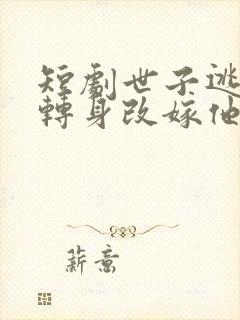 短劇世子逃
轉身改嫁他
薪意